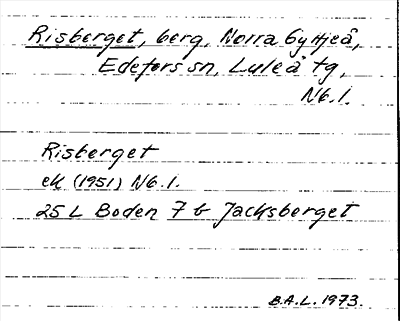 Risberget, berg, Norra Gyttjeå,
Edefors sn, Luleå tg,
Nb.l.
Risberget
ek (1951) Nb.l.
25 L Boden 7 b Jacksberget
B.A.L. 1973.